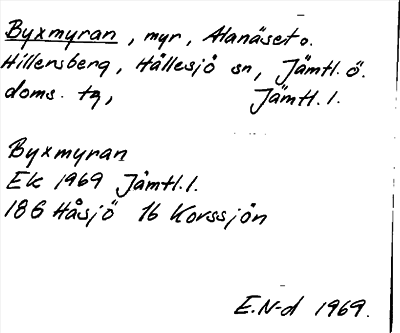 Byxmyran, myr, Alanäset o.
Hillensberg, Hållesjö sn, Jämtl. ö.
doms. tg, Jämtl. l.
Byxmyran
Ek 1969 Jämtl. l.
186 Håsjö 16 Korssjön
E.N-d 1969.